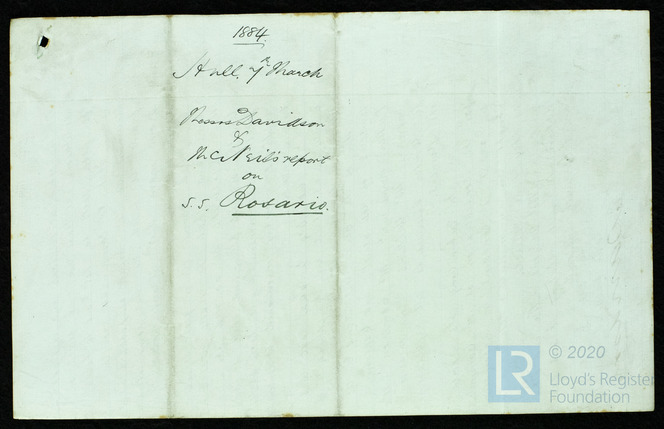 1884.
Hull, 7th March
Messrs Davidson
&
McNeil's report
on
S.S. Rosario.
LR © 2020
Lloyd's Register
Foundation